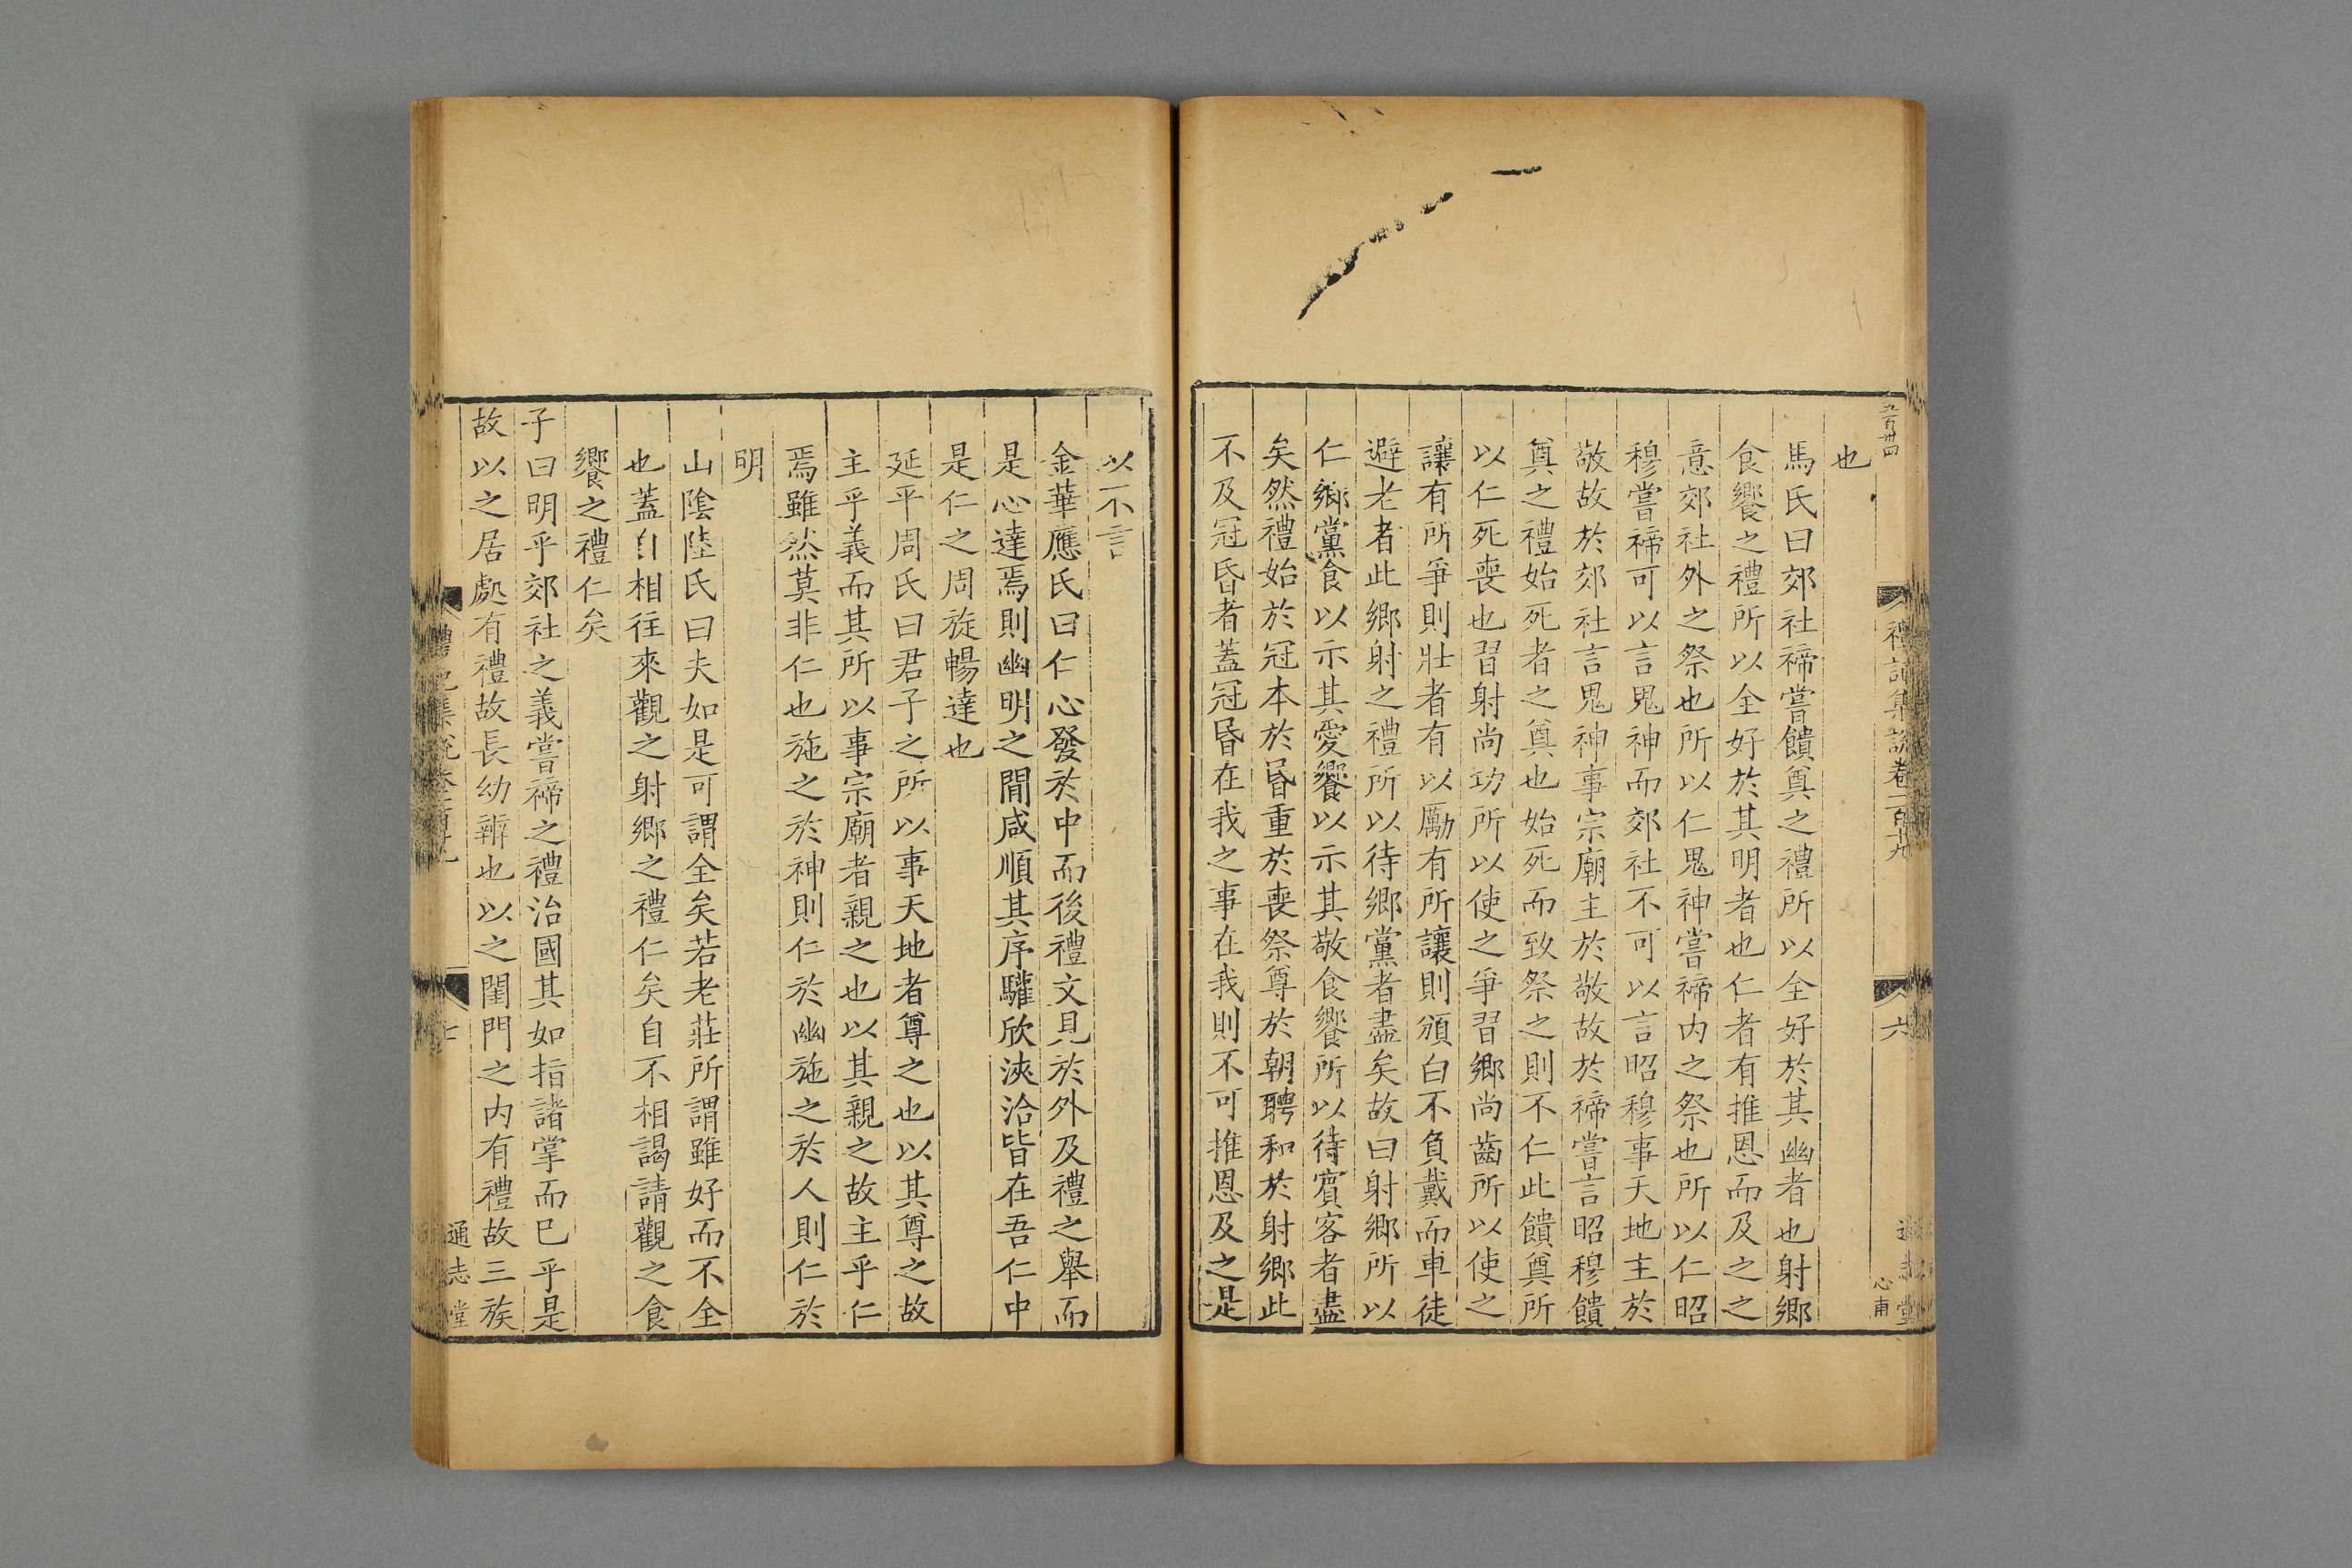 五百卅四
禮記集說卷一百十九
六
通志堂
心甫
也
馬氏曰郊社禘嘗饋奠之禮所以全好於其幽者也射鄉
食饗之禮所以全好於其明者也仁者有推恩而及之之
意郊社外之祭也所以仁鬼神嘗禘内之祭也所以仁昭
穆嘗禘可以言鬼神而郊社不可以言昭穆事天地主於
敬故於郊社言鬼神事宗廟主於敬故於禘嘗言昭穆饋
奠之禮始死者之奠也始死而致祭之則不仁此饋奠所
以仁死喪也習射尚功所以使之爭習鄉尚齒所以使之
讓有所爭則壯者有以勵有所讓則頒白不負戴而車徒
避老者此鄉射之禮所以待鄉黨者盡矣故曰射鄉所以
仁鄉黨食以示其愛饗以示其敬食饗所以待賓客者盡
矣然禮始於冠本於昏重於喪祭尊於朝聘和於射鄉此
不及冠昏者蓋冠昏在我之事在我則不可推恩及之是
以不言
金華應氏曰仁心發於中而後禮文見於外及禮之舉而
是心達焉則幽明之間咸順其序驩欣浹洽皆在吾仁中
是仁之周旋暢達也
延平周氏曰君子之所以事天地者尊之也以其尊之故
主乎義而其所以事宗廟者親之也以其親之故主乎仁
焉雖然莫非仁也施之於神則仁於幽施之於人則仁於
明
山陰陸氏曰夫如是可謂全矣若老莊所謂雖好而不全
也蓋自相往來觀之射鄉之禮仁矣自不相謁請觀之食
饗之禮仁矣
子曰明乎郊社之義嘗禘之禮治國其如指諸掌而已乎是
故以之居處有禮故長幼辨也以之閨門之内有禮故三族
禮記集說卷一百十九
七
通志堂